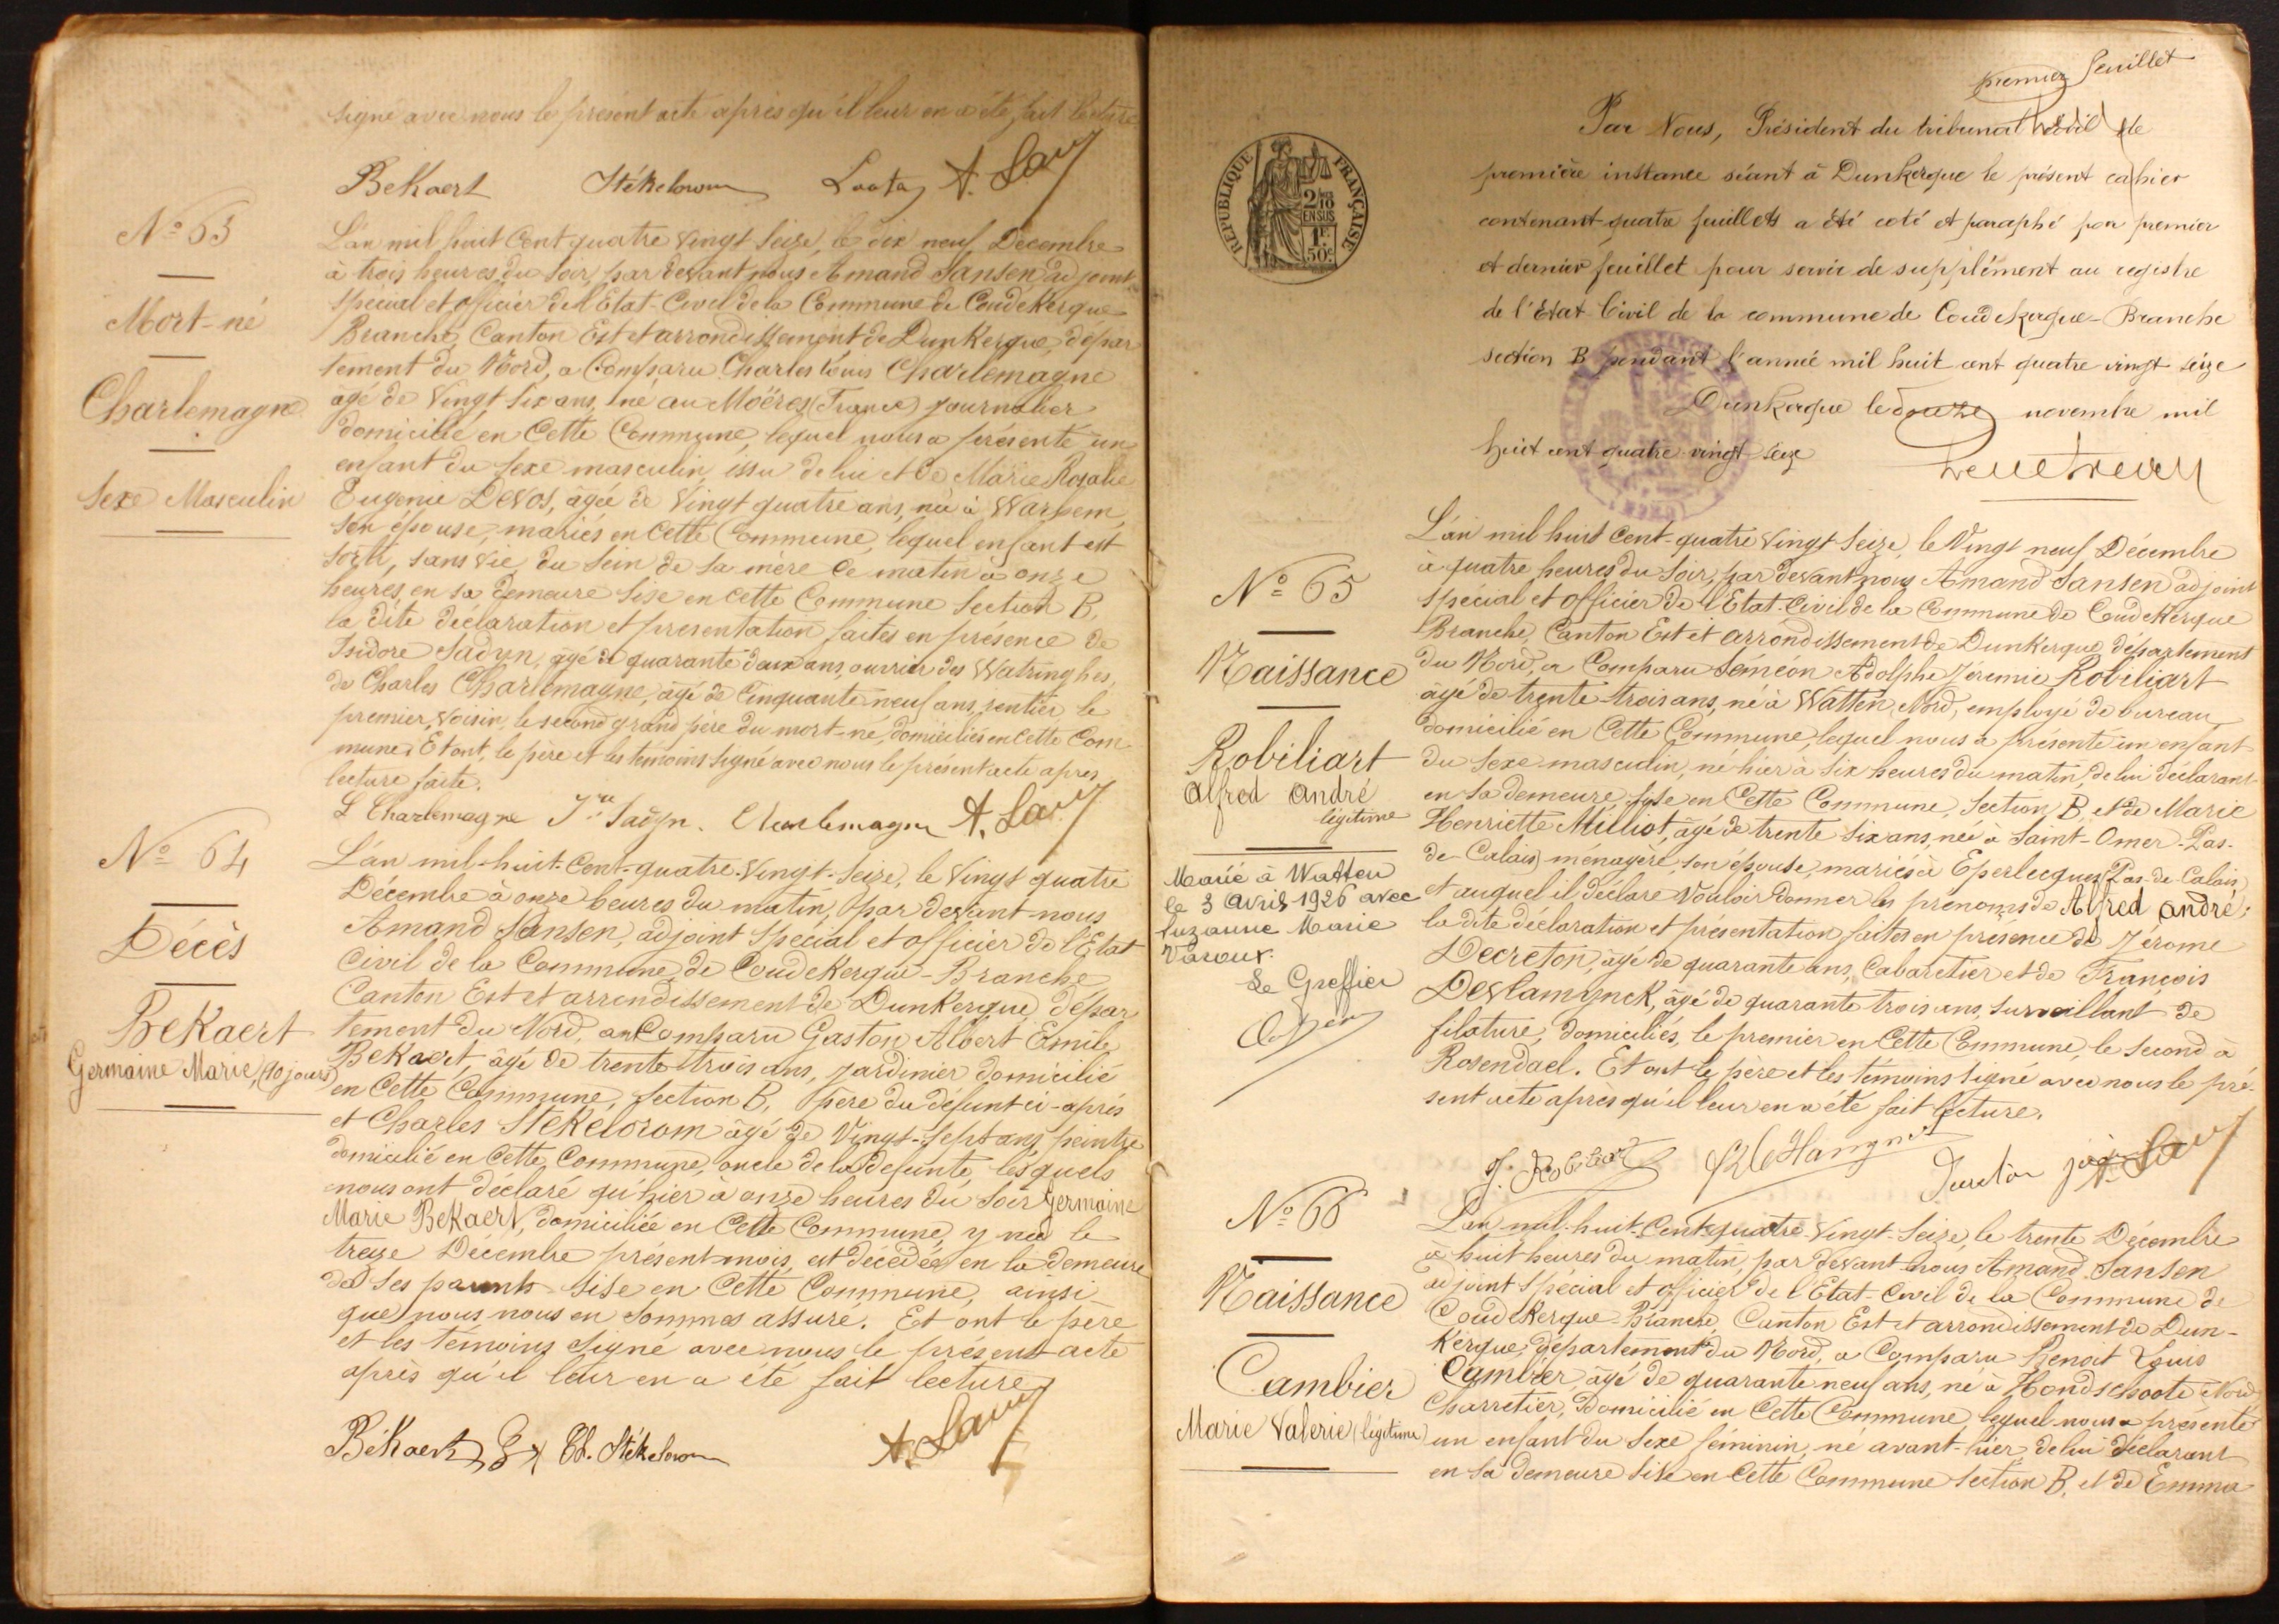 signé avec nous le présent acte après qu'il leur en a été fait lecture
BeKaert Stékelorom Loota A. San
N° 63
Mort-né
Charlemagne
Sexe Masculin
L'an mil huit Cent quatre Vingt Seize, le dix neuf Décembre
à trois heures du Soir, par devant nous Amand Jansen adjoint
Spécial et Officier de l'Etat-Civil de la Commune de CoudeKerque
Branche, Canton Est et arrondissement de DunKerque, dépar
tement du Nord, a Comparu Charles Louis Charlemagne
âgé de Vingt Six ans, né au Moëres (France) journalier
domicilié en Cette Commune, lequel nous a présenté un
enfant du Sexe masculin, issu de lui et de Marie Rosalie
Eugenie DeVos, âgée de Vingt quatre ans, née à Warhem,
Son épouse, mariés en Cette Commune, lequel enfant est
Sorti, sans vie, du Sein de Sa mère Ce matin à onze
heures, en sa demeure Sise en Cette Commune Section B,
la dite déclaration et présentation faites en présence de
Isidore Sadyn, âgé de quarante deux ans, ouvrier des Watringhes,
de Charles Charlemagne, âgé de Cinquante neuf ans, rentier le
premier Voisin, le second grand père du mort-né, domiciliés en Cette Com
mune. Et ont, le père et les témoins Signé avec nous le présent acte après
lecture faite.
L Charlemagne Sadyn. Charlemagne A. San
N° 64
Décès
BeKaert
Germaine Marie, (10 jours)
L'an mil-huit-Cent-quatre-Vingt-Seize, le Vingt quatre
Décembre à onze heures du matin, Par devant-nous
Amand Jansen, adjoint Spécial et officier de l'Etat
Civil de la Commune de CoudeKerque-Branche
Canton Est et arrondissement de DunKerque, dépar
tement du Nord, ont Comparu Gaston Albert Emile
BeKaert, âgé de trente trois ans, Jardinier domicilié
en Cette Commune, Section B, Père du défunt ci-après
et Charles SteKelorom âgé de Vingt-Sept ans, peintre
domicilié en Cette Commune, oncle de la défunte, lesquels
nous ont déclaré qu'hier à onze heures du Soir Germaine
Marie BeKaert, domiciliée en Cette Commune, y née le
treize Décembre présent mois, est décédée en la demeure
de Ses parents Sise en Cette Commune, ainsi
que nous nous en Sommes assuré. Et ont le père
et les témoins Signé avec nous le présent acte
après qu'il leur en a été fait lecture
BéKaert Ch. Stékelorom A. San
premier feuillet
Par Nous, Président du tribunal civil de
première instance séant à DunKerque le présent cahier
contenant quatre feuillets a été coté et paraphé par premier
et dernier feuillet pour servir de supplément au registre
de l'Etat Civil de la commune de Coudekerque-Branche
section B pendant l'année mil huit cent quatre vingt seize
DunKerque le douze novembre mil
huit cent quatre vingt seize
RÉPUBLIQUE FRANÇAISE
2/10
EN SUS
1F
50c
N° 65
Naissance
Robiliart
Alfred André
légitime
Marié à Watten
le 3 Avril 1926 avec
Suzanne Marie
Varoux.
Le Greffier
L'an mil huit Cent-quatre Vingt Seize, le Vingt neuf Décembre
à quatre heures du Soir, par devant nous Amand Jansen adjoint
Spécial et Officier de l'Etat-Civil de la Commune de CoudeKerque
Branche, Canton Est et arrondissement de DunKerque, département
du Nord, a Comparu Seméon Adolphe Jérémie Robiliart
âgé de trente-trois ans, né à Watten, Nord, employé de bureau
domicilié en Cette Commune, lequel nous a présenté un enfant
du Sexe masculin, né hier à Six heures du matin, de lui déclarant
en sa demeure, sise en Cette Commune, Section B, et de Marie
Henriette Milliot, âgé de trente Six ans, née à Saint-Omer-Pas-
de-Calais) ménagère, son épouse, mariés à Eperlecques (Pas-de-Calais)
et auquel il déclare Vouloir donner les prénoms de Alfred André;
la dite déclaration et présentation faites en présence de Jérome
Decreton, âgé de quarante ans, Cabaretier et de François
Deslamynck, âgé de quarante trois ans, Surveillant de
filature, domiciliés, le premier en Cette Commune, le Second à
Rosendael. Et ont le père et les témoins Signé avec nous le pré-
sent acte après qu'il leur en a été fait lecture.
J. Robiliart A. San
N° 66
Naissance
Cambier
Marie Valerie (légitime)
L'an mil-huit-Cent-quatre-Vingt-Seize, le trente Décembre
à huit heures du matin, par devant nous Amand Jansen
adjoint Spécial et officier de l'Etat-Civil de la Commune de
CoudeKerque-Branche, Canton Est et arrondissement de Dun-
Kerque, département du Nord, a Comparu Benoit Louis
Cambier, âgé de quarante neuf ans, né à Hondschoote (Nord)
Charretier, Domicilié en Cette Commune, lequel nous a présenté
un enfant du Sexe féminin, né avant-hier, de lui déclarant
en Sa demeure Sise en Cette Commune Section B, et de Emma